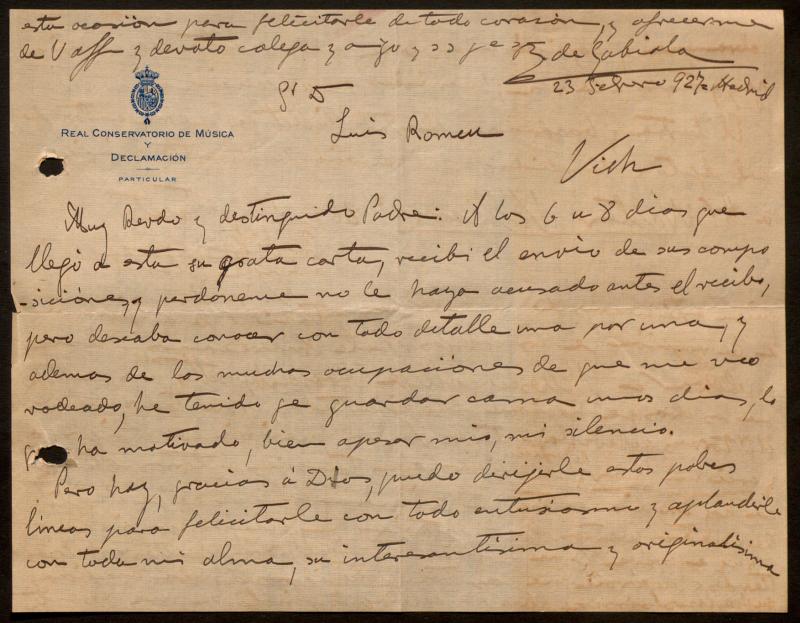 esta ocasión para felicitarle de todo corazón, y ofrecerme
de V aff y devoto colega y amigo y ss
de Gabiola
23 Febrero 927. Madrid
Sr D
Luis Romeu
REAL CONSERVATORIO DE MÚSICA
Y
DECLAMACIÓN
PARTICULAR
Vich
Muy Revdo y distinguido Padre: A los 6 u 8 dias que
llegó a esta su grata carta, recibi el envio de sus compo
-siciónes, y perdóneme no le haya acusado antes el recibo,
pero deseaba conocer con todo detalle una por una, y
ademas de las muchas ocupaciones de que me veo
rodeado, he tenido qe guardar cama unos dias, lo
que ha motivado, bien apesar mio, mi silencio.
Pero hoy, gracias á Dios, puedo dirijerle estas pobres
lineas para felicitarle con todo entusiasmo y aplaudirle
con toda mi alma, su interesantisima y originalisima